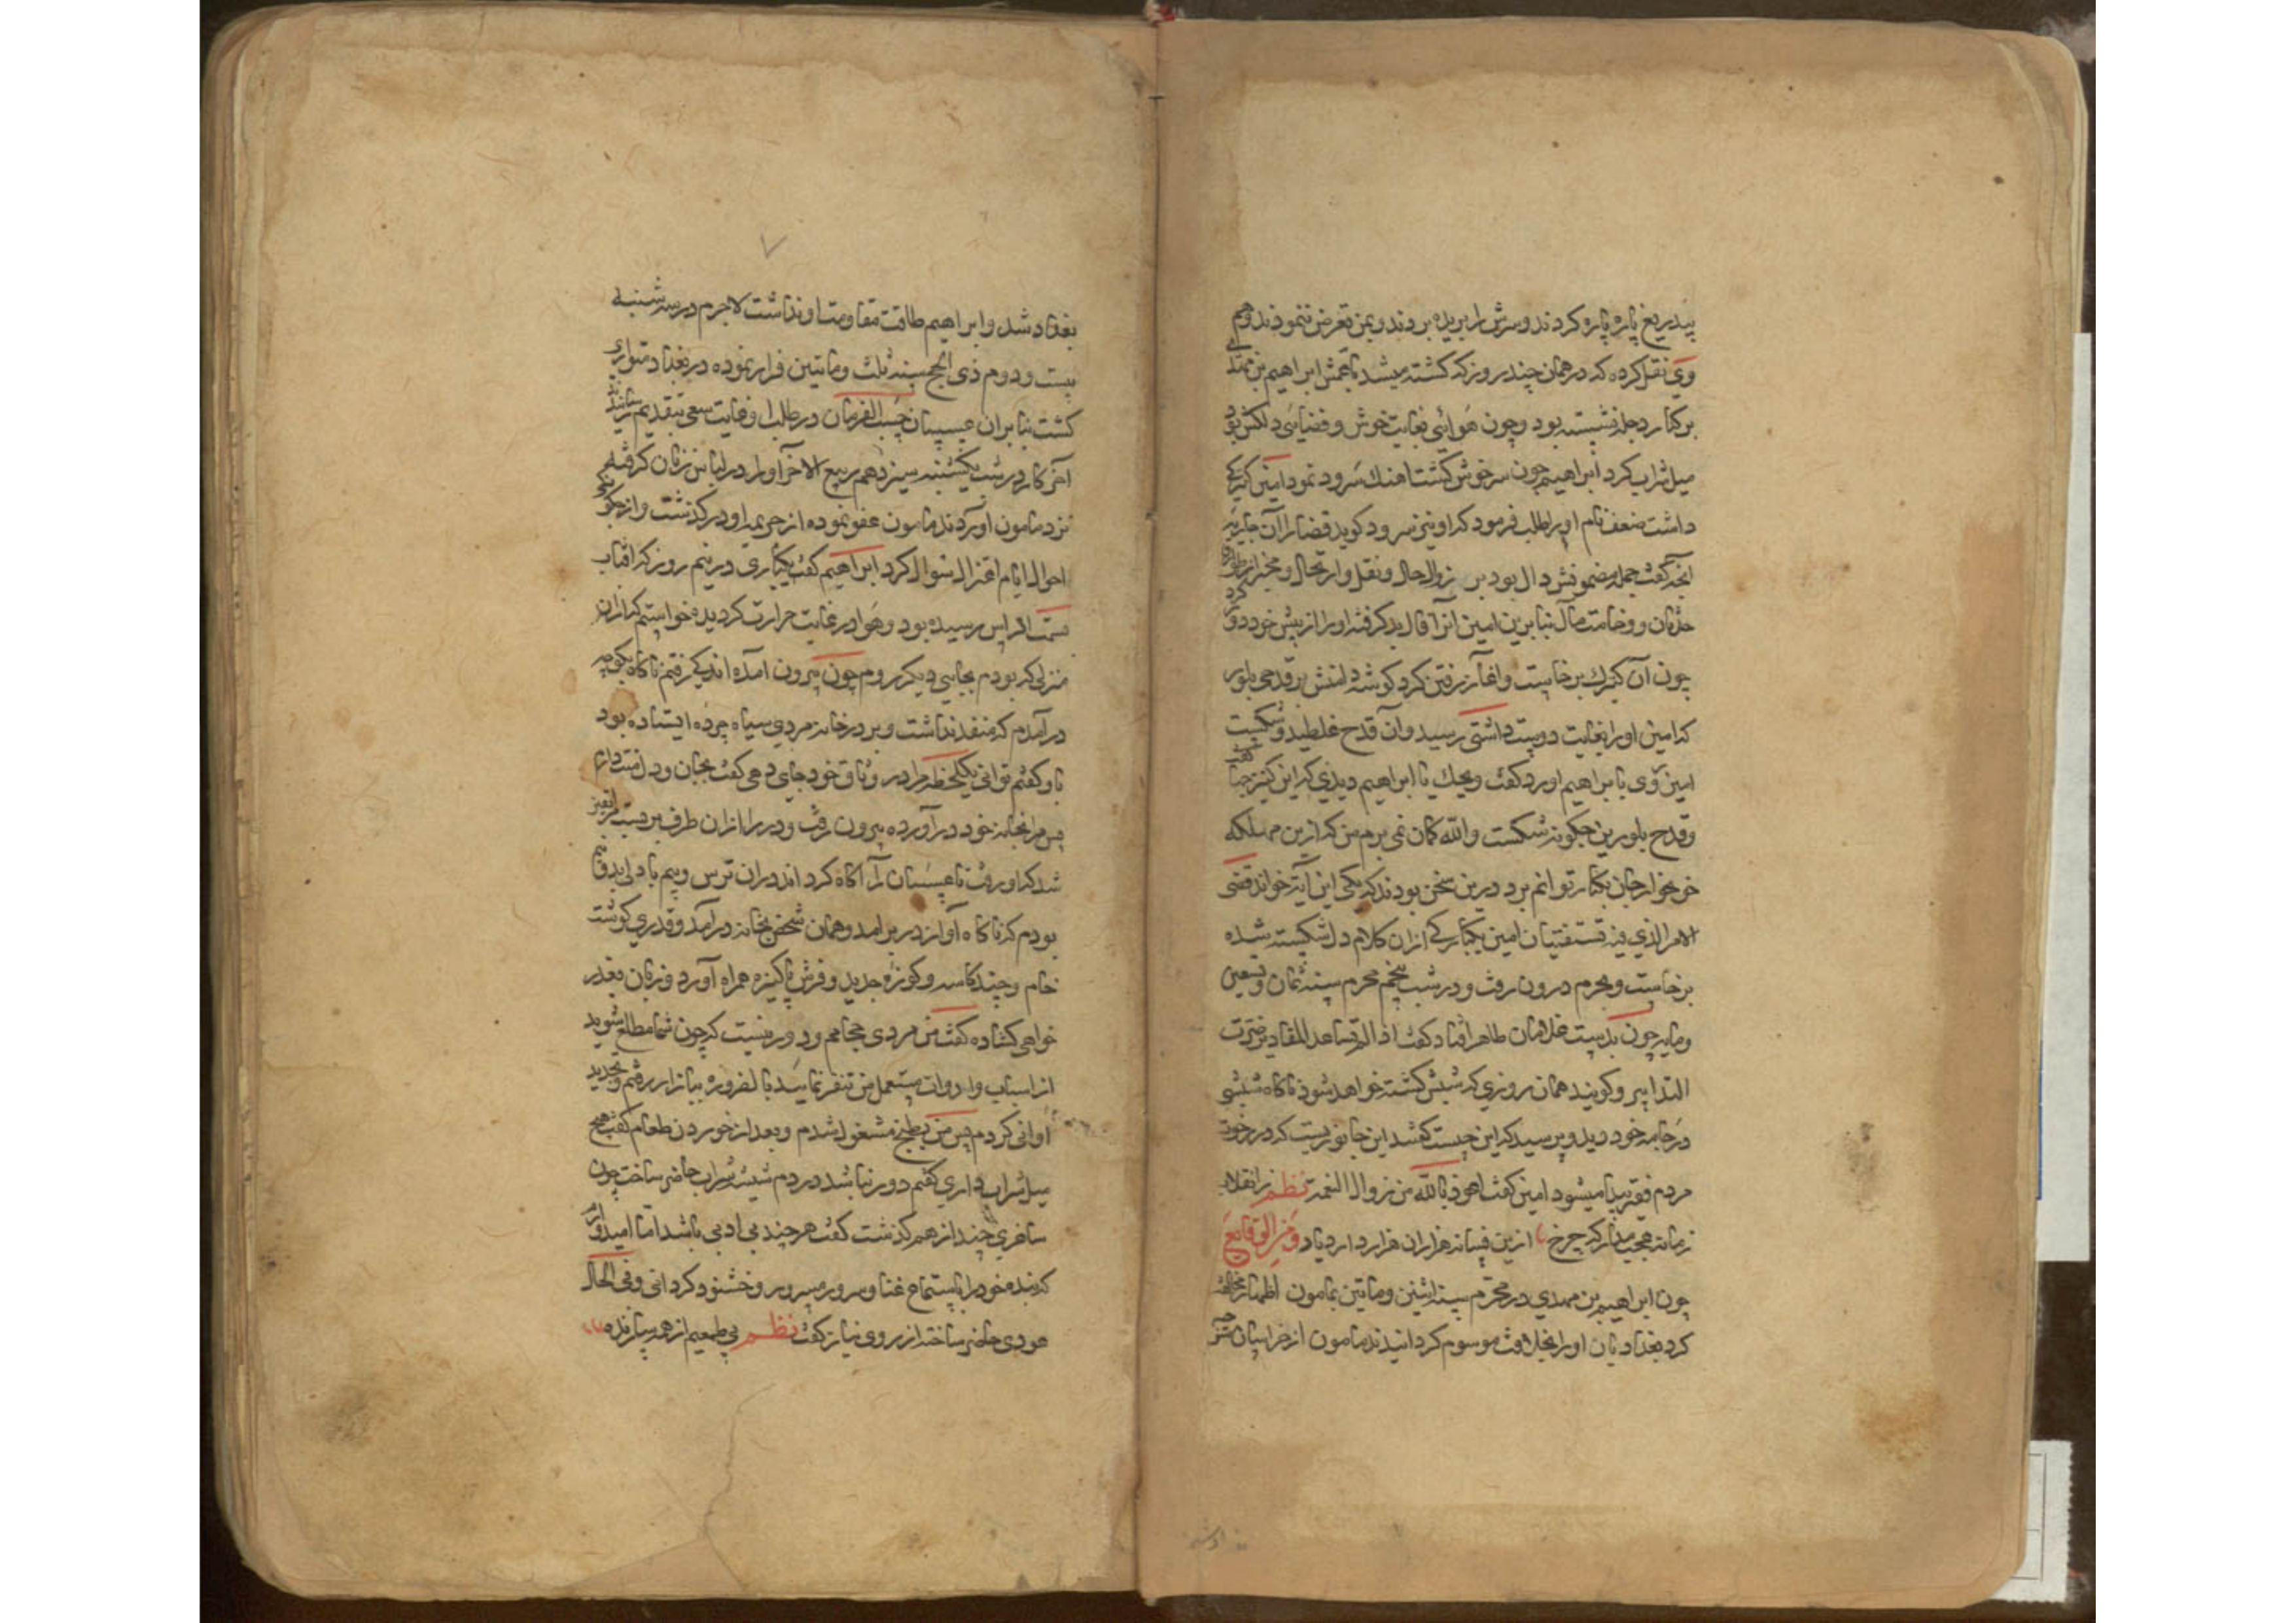 بیدریغ پاره پاره کردند و سرش را بریده بردند و بمن تعرض ننمودند و هم
وی نقل کرده که در همان چند روز که کشته میشد با عمش ابراهیم بن مهدی
بر کنار دجله نشسته بود و چون هوائی بغایت خوش و فضایی دلکش بود
میل شراب کرد ابراهیم چون سرخوش کشت اهنك سرود نمود امین کنیزکی
داشت ضعف نام او را طلب فرمود که او نیز سرود کوید قضا را آن جاریه
آنچه کفت جمله مضمونش دال بود بر زوال حال و نقل و ارتحال و مخبر از
حدثان و وخامت مآل بنابرین امین آنرا فال بد کرفته او را از پیش خود دور کرد
چون آن کنیزك برخاست و اغاز رفتن کرد کوشه دامنش بر قدحی بلور
که امین او را بغایت دوست داشتی رسید و آن قدح غلطید و شکست
امین روی با براهیم اورد کفت ویحك یا ابراهیم دیدی که این کنیز چها کفت
و قدح بلورین چکونه شکست والله کمان نمی برم من که ازین مهلکه
خونخوار جان بکنار توانم برد درین سخن بودند که یکی این آیت خواند قضی
الامر الذی فیه تستفتیان امین یکبارکی ازان کلام دل شکسته شده
برخاست و بحرم درون رفت و در شب پنجم محرم سنه ثمان و تسعین
و مایه چون بدست غلامان طاهر افتاد کفت اذا لم تساعد المقادیر ضرت
التدابیر و کویند همان روزی که شبش کشته خواهد شود ناکاه شپشی
در جامه خود دید و پرسید که این چیست کفتند این جانوریست که در رخوت
مردم فقیر پیدا میشود امین کفت اعوذ بالله من زوال النعمة نظم ز انقلاب
زمانه عجب مدار که چرخ ازین فسانه هزاران هزار دارد یاد و من الوقایع
چون ابراهیم بن مهدی در محرم سنه اثنین و ماتین بمامون اظهار مخالفت
کرد بغدادیان او را بخلافت موسوم کردانیدند مامون از خراسان متوجه
بغداد شد و ابراهیم طاقت مقاومت او نداشت لاجرم در سه شنبه
بیست و دوم ذی الحج سنه ثلث و ماتین فرار نموده در بغداد متواری
کشت بنابران عسسان حسب الفرمان در طلب او غایت سعی بتقدیم رسانیدند
آخر کار در شب یکشنبه سیزدهم ربیع الاخر او را در لباس زنان کرفته
نزد مامون اوردند مامون عفو نموده از جریمه او در کذشت و از چکونکی
احوال ایام اختزال سوال کرد ابراهیم کفت یکباری در نیم روز که افتاب
سمت الراس رسیده بود و هوا در غایت حرارت کردیده خواستم که ازان
منزلی که بودم بجایی دیکر روم چون بیرون آمده اندکی رفتم ناکاه بکوچه
درآمدم که منفذ نداشت و بر در خانه مردی سیاه چرده ایستاده بود
باو کفتم توانی یکلحظه مرا در وثاق خود جای دهی کفت بجان و دل منت دارم
پس مرا بخانه خود درآورده بیرون رفت و در را ازان طرف بر بست
شد که او رفت تا عسسان را آکاه کرداند دران ترس و بیم با دلی بدو نیم
بودم که ناکاه آواز در بر امد و همان شخص بخانه درآمد و قدری کوشت
خام و چند کاسه و کوزه جدید و فرش پاکیزه همراه آورد و زبان بعذر
خواهی کشاده کفت من مردی حجامم و دور نیست که چون شما مطلع شوید
از اسباب و ادوات مستعمل من تنفر نمایید بالضروره ببازار رفتم و تجدید
اوانی کردم پس من بطبخ مشغول شدم و بعد از خوردن طعام کفت هیچ
میل شراب داری کفتم دور نباشد در دم شیشه شراب حاضر ساخت چون
ساغری چند از هم کذشت کفت هر چند بی ادبی باشد اما امیدوارم
که بنده خود را باستماع غنا و سرور مسرور و خشنود کردانی و فی الحال
عودی حاضر ساخته از روی نیاز کفت نظم